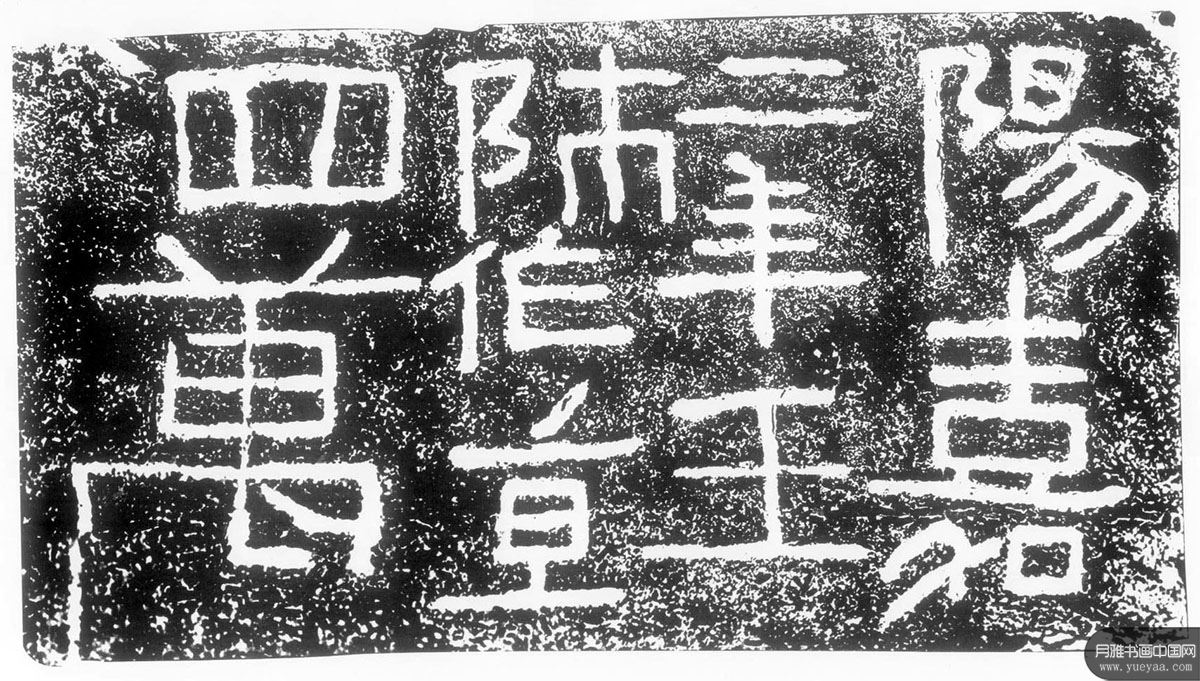 陽嘉
二年王
師作直
四萬
月雅书画中国网
www.yueyaa.com